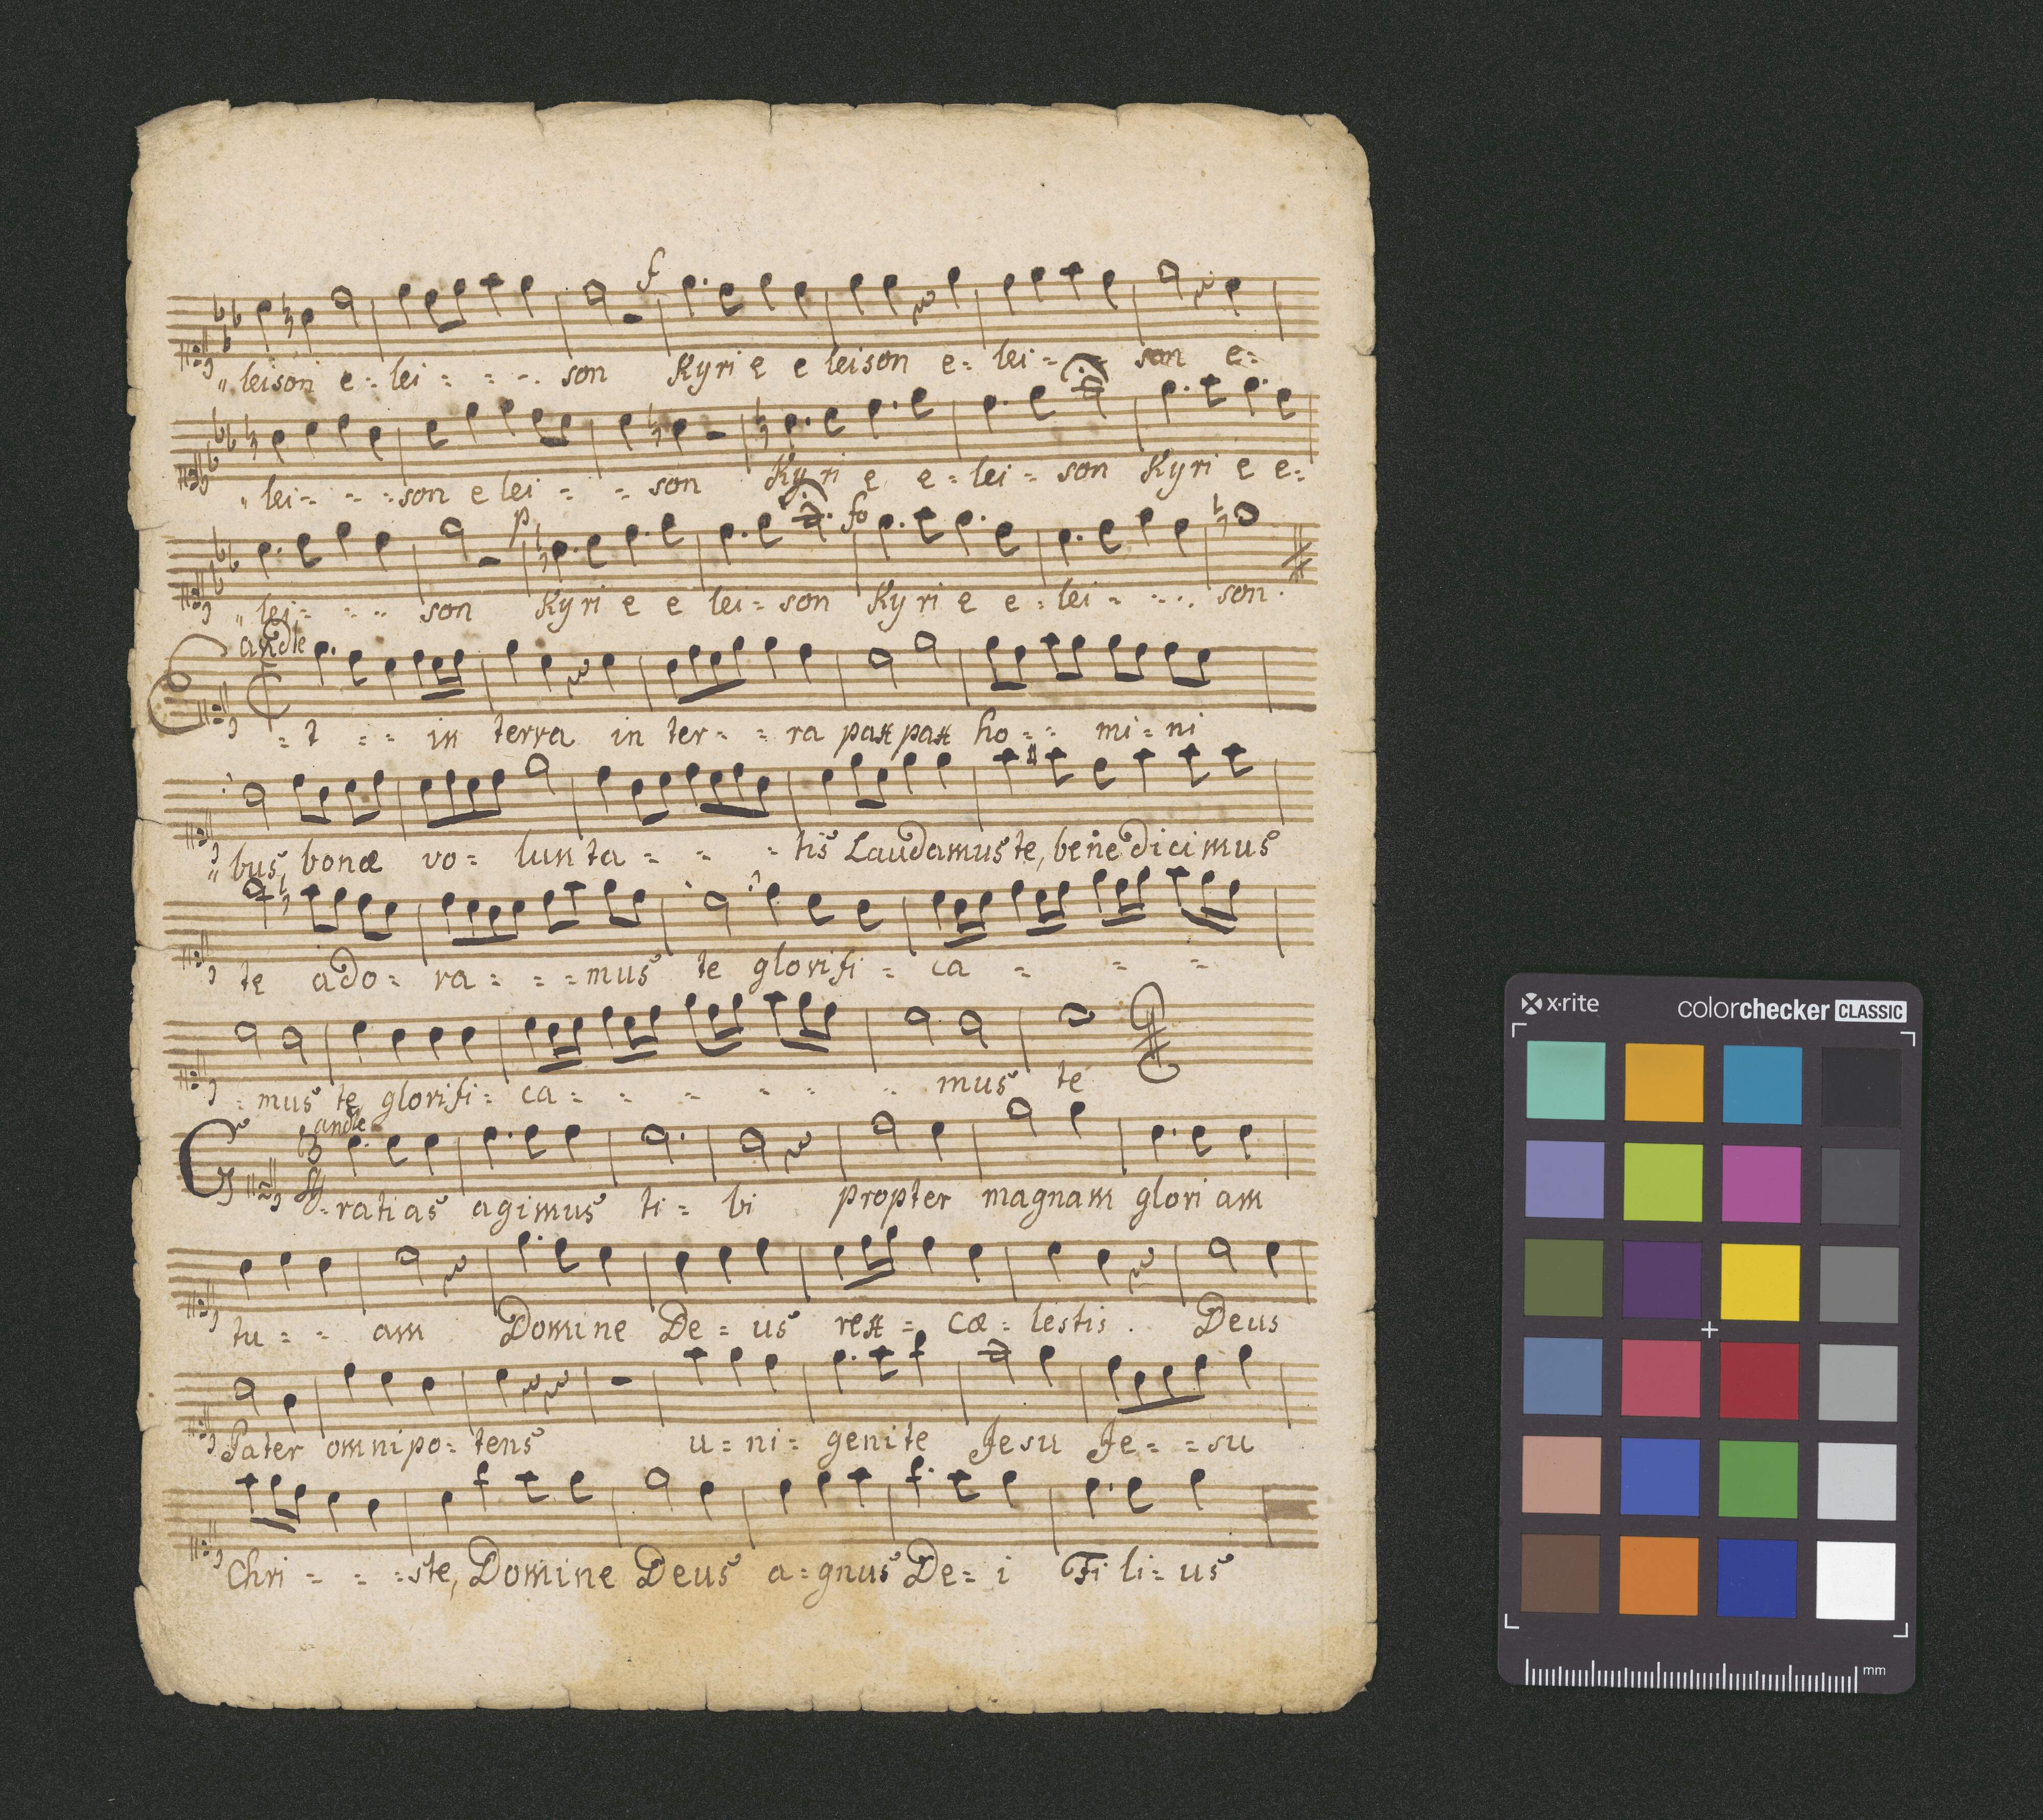 f
" leison e=lei = = -. son Kyri e e leison e= lei = = son e=
" lei = - =son e lei = = son Kyri e e=lei = son Kyri e e=
p fo
" lei = - .. son Kyri e e lei = son Kyri e e = lei = -.. son.
andle
Et = = in terra in ter = = ra pax pax ho = = mi = ni
" bus, bonæ vo = lun ta = - = tis Laudamus te, benedicimus
te ado = ra = = = mus te glorifi = ca = = =
= mus te glorifi = ca = = = = .. mus te
andle
G = ratias agimus ti = bi propter magnam gloriam
tu = = am Domine De = us rex = cæ = lestis . Deus
Pater omnipo = tens u = ni = genite Jesu Je = = su
Chri = = = ste, Domine Deus a = gnus De = i Fi li = us
x·rite colorchecker CLASSIC
mm